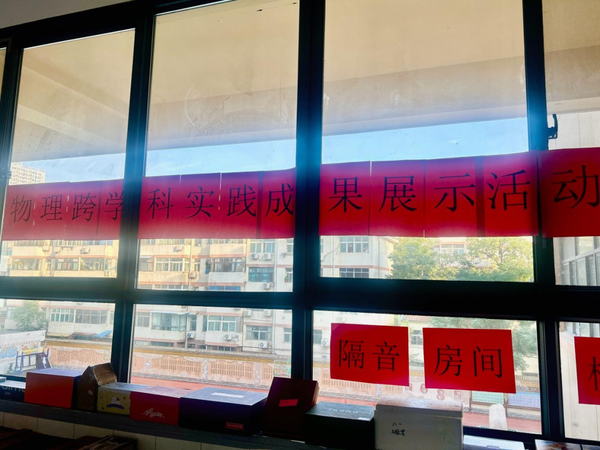 物理跨学科实践成果展示活动
隔音 房间